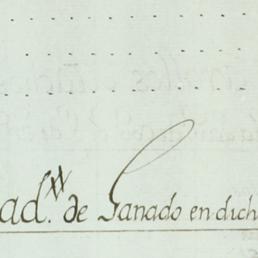 ad.^xx de Ganado en dich